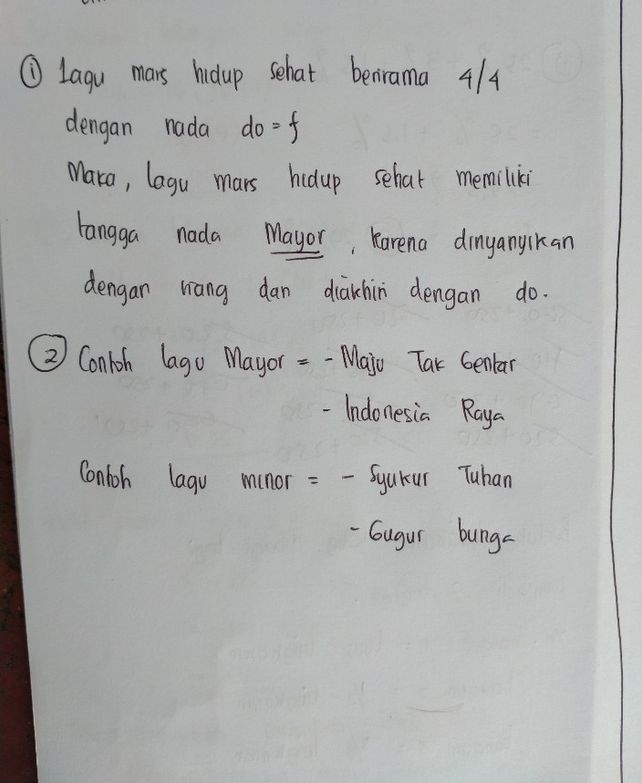 ① Lagu mars hidup sehat berirama 4/4
dengan nada do = f
Maka, lagu mars hidup sehat memiliki
tangga nada Mayor, karena dinyanyikan
dengan riang dan diakhiri dengan do.
② Contoh lagu Mayor = - Maju Tak Gentar
- Indonesia Raya
Contoh lagu minor = - Syukur Tuhan
- Gugur bunga